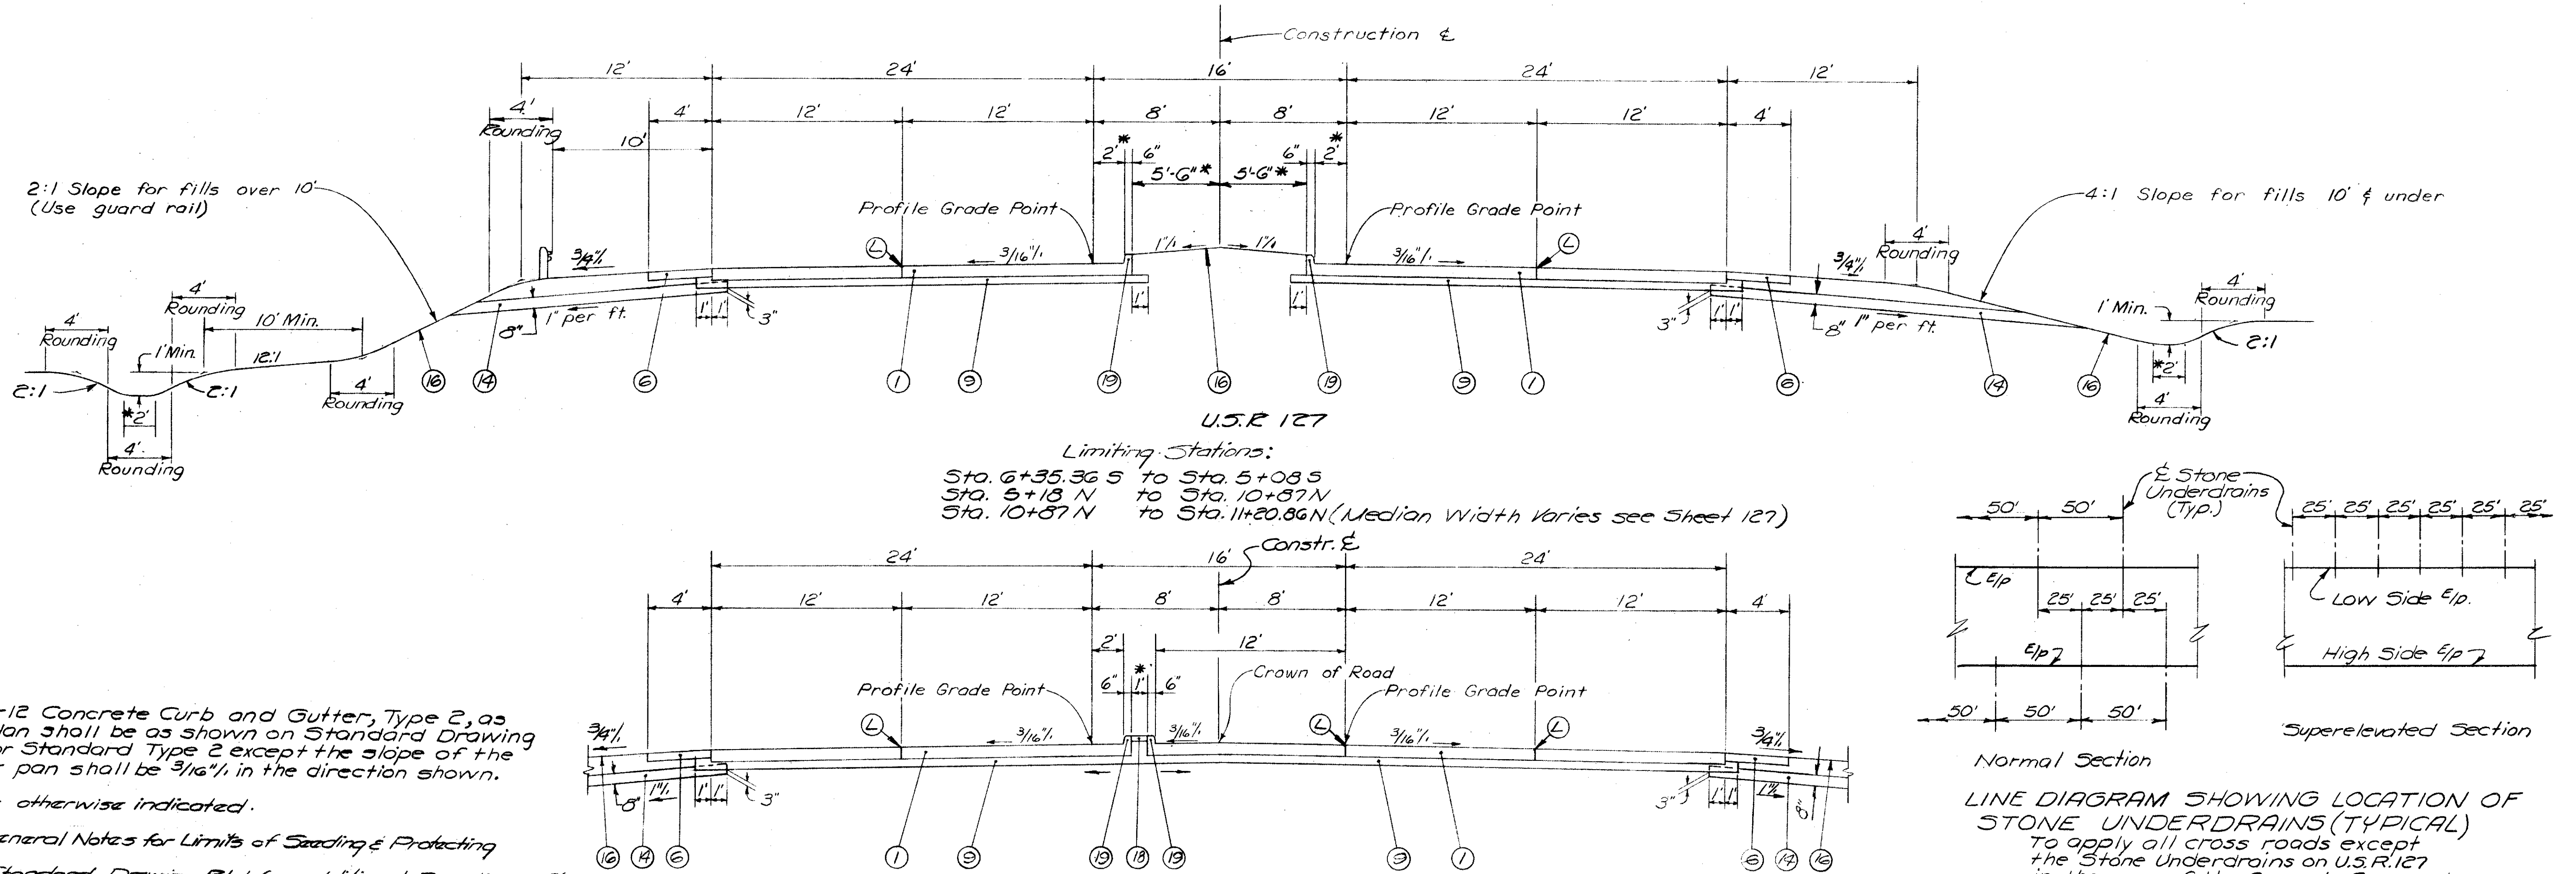 Construction ℄
12' 24' 16' 24' 12'
4' 4' 12' 12' 8' 8' 12' 12' 4'
Rounding
10'
* *
2' 6" 6" 2'
5'-6"* 5'-6"*
2:1 Slope for fills over 10'
(Use guard rail)
4:1 Slope for fills 10' & under
Profile Grade Point
Profile Grade Point
4'
Rounding
3/4"/, L 3/16"/, 1"/, 1"/, 3/16"/, L 3/4"/,
4'
Rounding
4'
Rounding
4'
Rounding
10' Min.
1' Min.
12:1
2:1
2:1
*2'
4'
Rounding
4'
Rounding
8" 1" per ft. 1' 1' 3" 1' 1' 3" 1' 1' 8" 1" per ft.
1' Min.
2:1
*2'
4'
Rounding
16 14 6 1 9 19 16 19 9 1 6 14 16
U.S.R 127
Limiting Stations:
Sta. 6+35.36 S to Sta. 5+08 S
Sta. 5+18 N to Sta. 10+87 N
Sta. 10+87 N to Sta. 11+20.86 N (Median Width Varies see Sheet 127)
Constr. ℄
24' 16' 24'
4' 12' 12' 8' 8' 12' 12' 4'
2' 12'
*
6" 1' 6"
Crown of Road
Profile Grade Point
Profile Grade Point
3/4"/, L 3/16"/, 3/16"/, L 3/16"/, L 3/4"/,
8" 1"/, 1' 1' 3" 3" 1' 1' 1"/, 8"
16 14 6 1 9 19 18 19 9 1 6 14 16
-12 Concrete Curb and Gutter, Type 2, as
lan shall be as shown on Standard Drawing
or Standard Type 2 except the slope of the
r pan shall be 3/16"/, in the direction shown.
otherwise indicated.
eneral Notes for Limits of Seeding & Protecting
℄ Stone
Underdrains
(Typ.)
50' 50'
25' 25' 25' 25' 25' 25'
E/P
Low Side E/P.
25' 25' 25'
E/P
High Side E/P
50' 50' 50'
Superelevated Section
Normal Section
LINE DIAGRAM SHOWING LOCATION OF
STONE UNDERDRAINS (TYPICAL)
To apply all cross roads except
the Stone Underdrains on U.S.R. 127